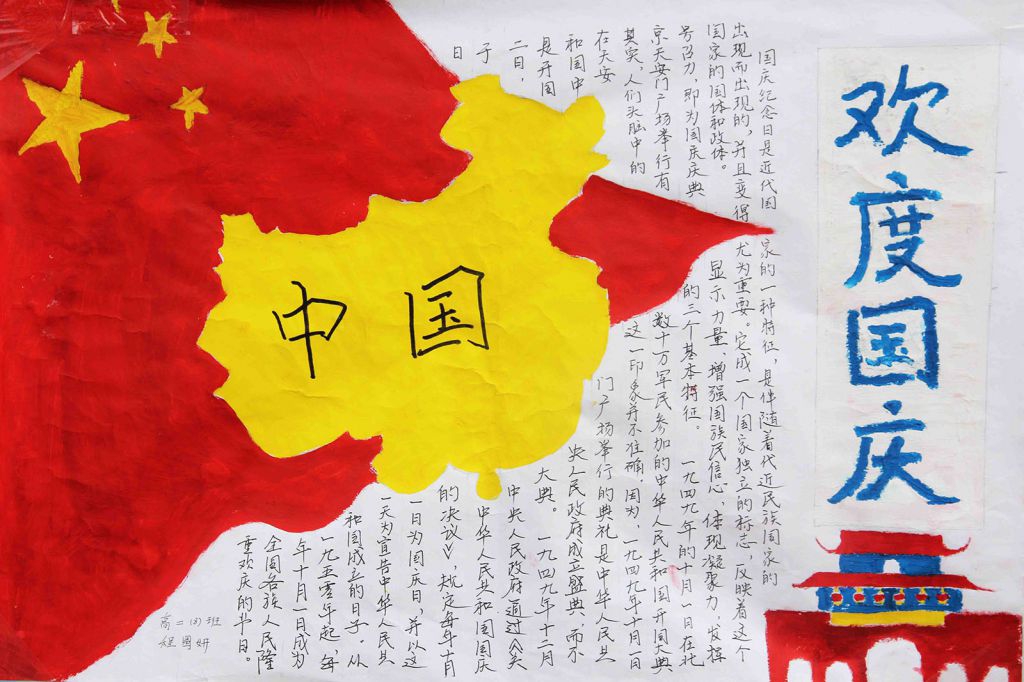 欢度国庆
国庆纪念日是近代国家的一种特征，是伴随着代近民族国家的
出现而出现的，并且变得尤为重要。它成一个国家独立的标志，反映着这个
国家的国体和政体。显示力量、增强国族民信心，体现凝聚力，发挥
号召力，即为国庆庆典的三个基本特征。一九四九年的十月一日在北
京天安门广场举行有数十万军民参加的中华人民共和国开国大典
其实，人们头脑中的这一印象并不准确。因为，一九四九年十月一日
在天安门广场举行的典礼是中华人民共
和国中央人民政府成立盛典，而不
是开国大典。一九四九年十二月
二日，中央人民政府通过《关
子中华人民共和国国庆
日的决议》，规定每年十月
一日为国庆日，并以这
一天为宣告中华人民共
和国成立的日子。从
一九五零年起，每
年十月一日成为
全国各族人民隆
重欢庆的节日。
中国
高二(3)班